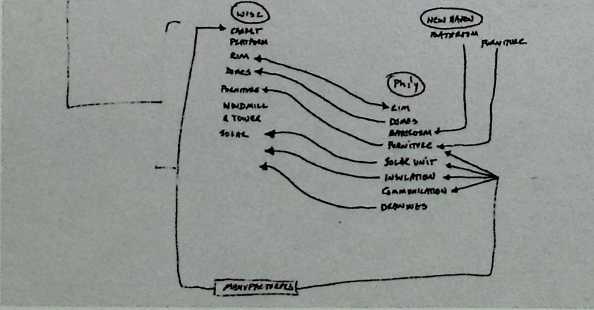 WISC
CARPET
PLATFORM
RIM
DOMES
FURNITURE
WINDMILL
& TOWER
SOLAR
NEW HAVEN
BATHROOM
FURNITURE
Phily
RIM
DOMES
BATHROOM
FURNITURE
SOLAR UNIT
INSULATION
COMMUNICATION
DRAWINGS
MANUFACTURERS